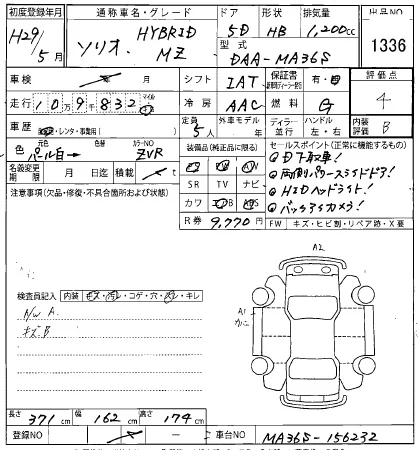 初度登録年月 通称車名・グレード ドア 形状 排気量 出品NO
H29/5月 ソリオ HYBRID MZ 5D HB 1,200cc
型式 DAA-MA36S 1336
車検 月 シフト IAT 保証書 有・無 評価点 4
走行 109,832 マイル km 冷房 AAC 燃料 G 内装評価 B
車歴 自家・レンタ・事業用( ) 定員 5人 外車モデル 年 ディーラー 並行 ハンドル 左・右
色 元色 パール白 → 色替 カラーNO ZVR 装備品(純正品に限る) セールスポイント(正常に機能するもの)
名義変更期限 月 日迄 積載 t
SR TV ナビ
カワ AB ABS
R券 9,770円
◎D下取車!
◎両側パワースライドドア!
◎HIDヘッドライト!
◎バックアイカメラ!
注意事項(欠品・修復・不具合箇所および状態) FW キズ・ヒビ割・リペア跡・X要
A2
検査員記入 内装・キズ・汚レ・コゲ・穴・スレ・キレ
A/W A
キズB
A1
長さ 371cm 幅 162cm 高さ 174cm
登録NO — 車台NO MA36S-156232